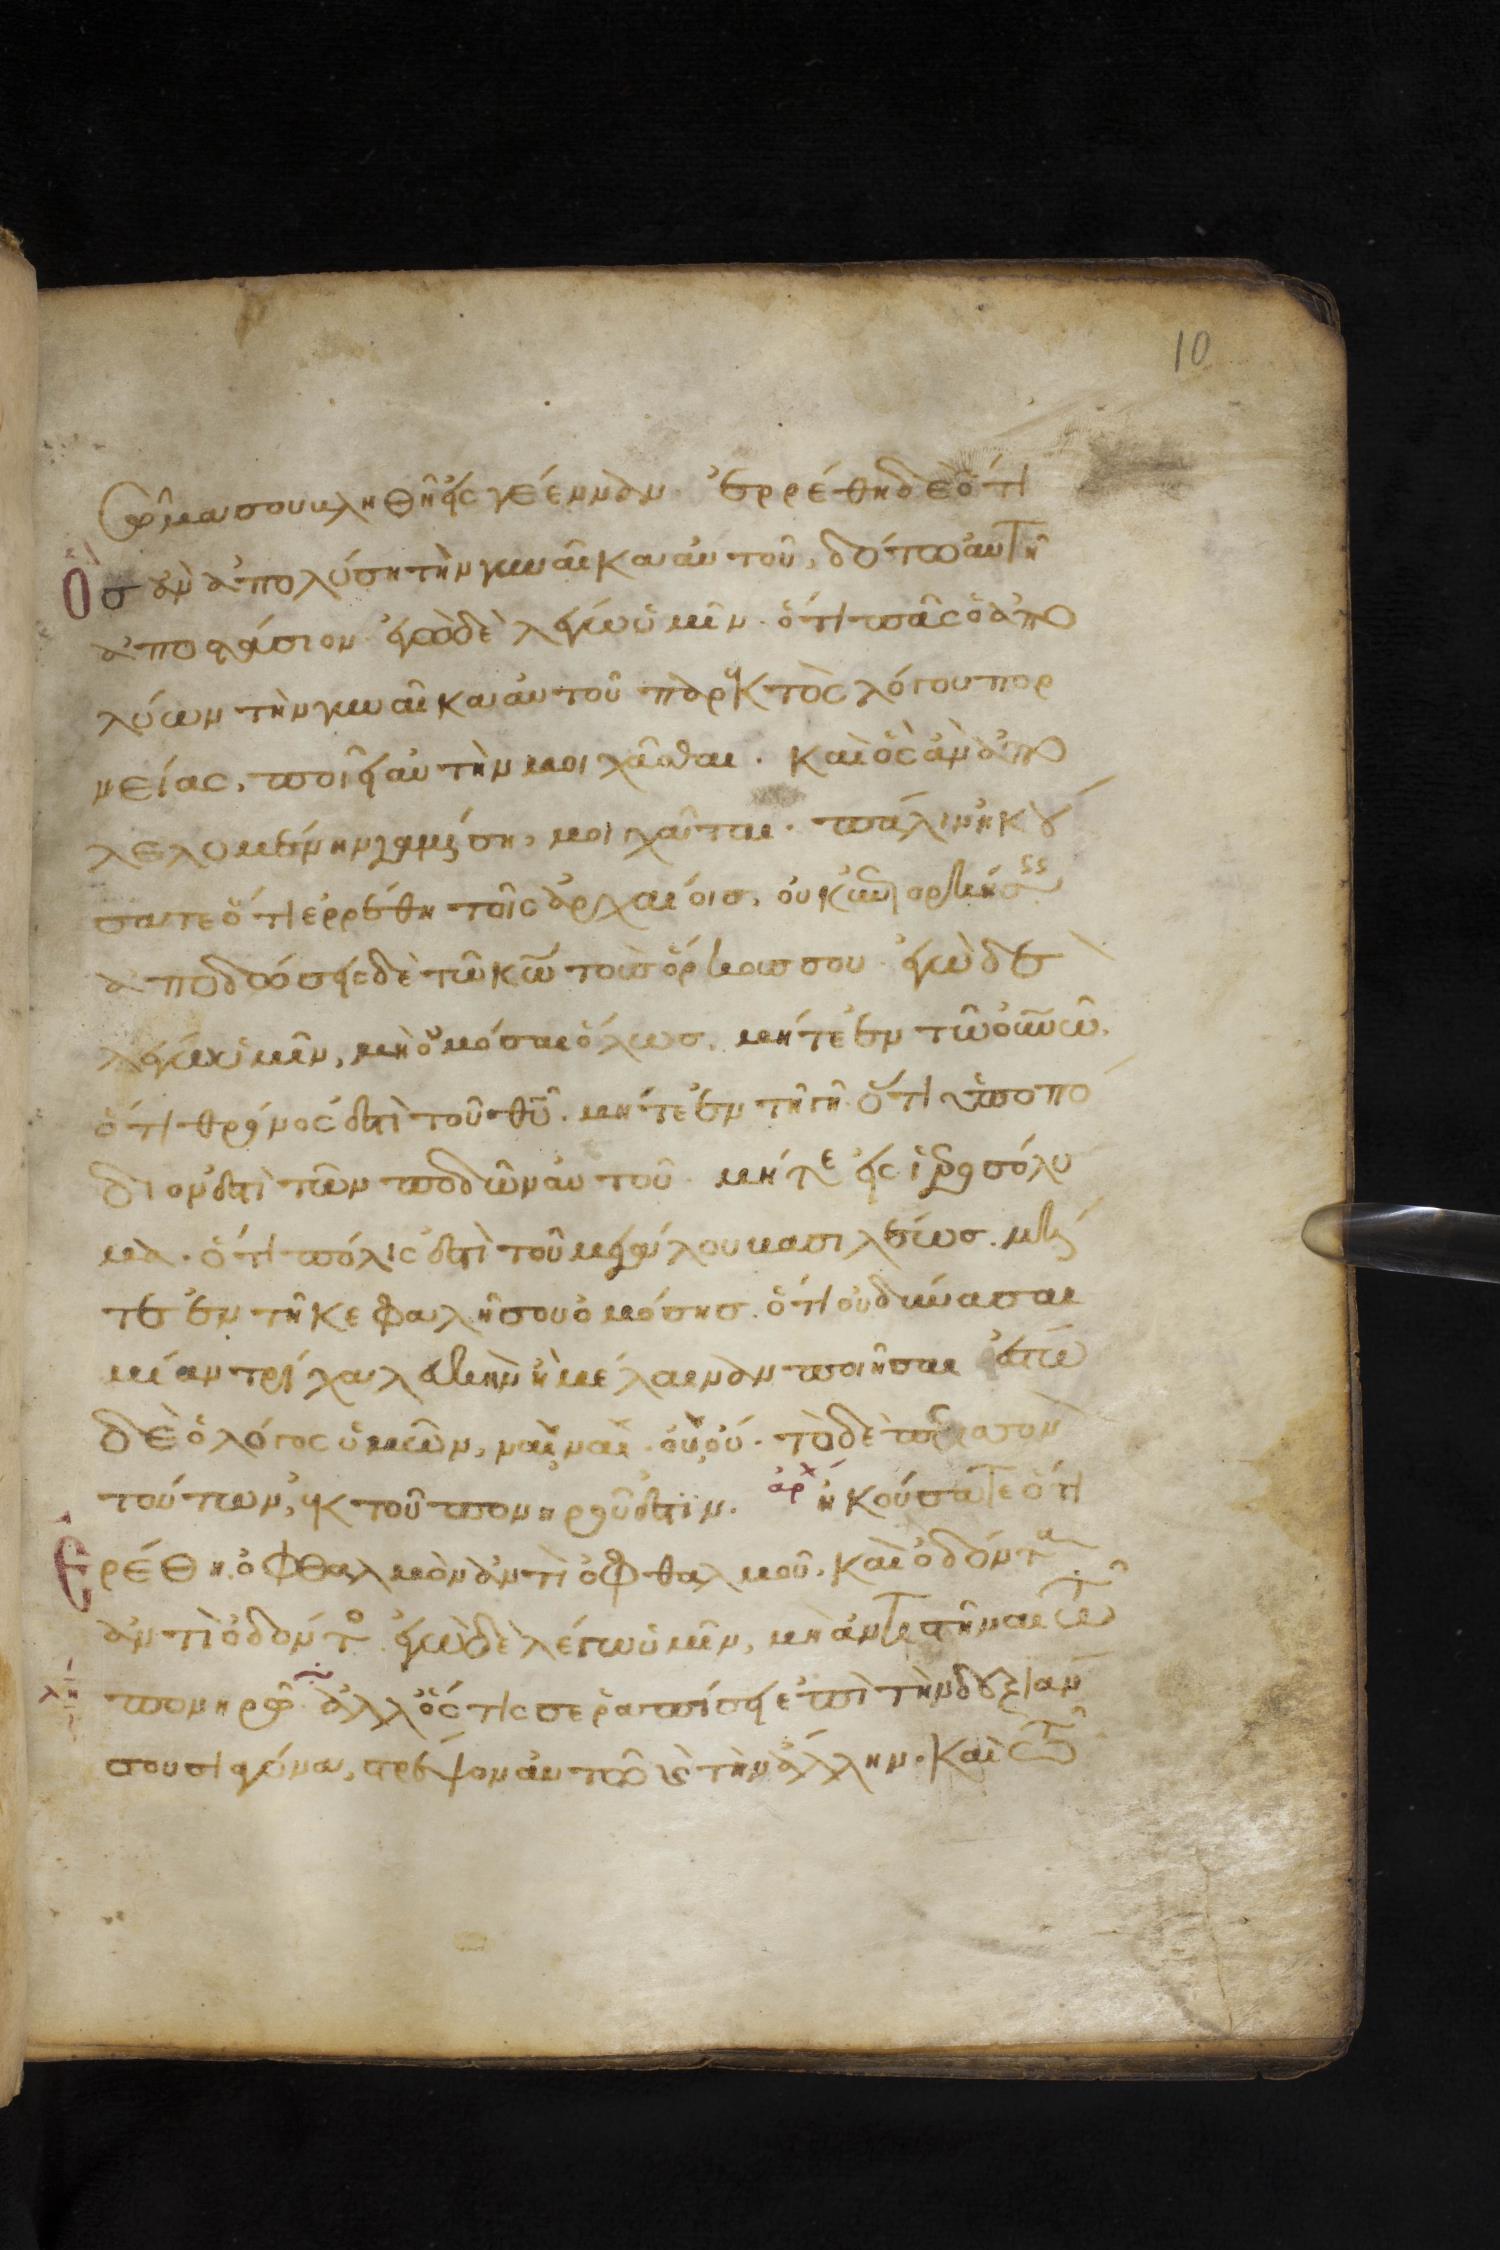 10
σῶμα σου βληθῆ εἰς γέενναν. ἐρρέθη δὲ ὅτι
Ὃσ ἂν ἀπολύση τὴν γυναῖκα αὐτοῦ, δότω αὐτῆ
ἀποστάσιον. ἐγὼ δὲ λέγω ὑμῖν. ὅτι πᾶς ὁ ἀπο
λύων τὴν γυναῖκα αὐτοῦ παρεκτὸς λόγου πορ
νείας, ποιεῖ αὐτὴν μοιχᾶσθαι. καὶ ὃς ἂν ἀπο
λελυμένην γαμήση, μοιχᾶται. πάλιν ἠκού
σατε ὅτι ερρέθη τοῖς ἀρχαίοισ, οὐκ ἐπιορκήσεις
ἀποδώσεις δὲ τῶ κω τοὺς ὅρκους σου. ἐγὼ δὲ
λέγω ὑμῖν, μὴ ὀμόσαι ὅλωσ, μήτε ἐν τῶ οὐνῶ.
ὅτι θρόνος ἐστὶ τοῦ θῦ. μήτε ἐν τῆ γῆ. ὅτι ὑποπό
διον ἐστὶ τῶν ποδῶν αὐτοῦ. μήτε εἰς ἱεροσόλυ
μα. ὅτι πόλις ἐστὶ τοῦ μεγάλου βασιλέωσ. μή
τε ἐν τῆ κεφαλῆ σου ὀμόσησ. ὅτι οὐ δύνασαι
μίαν τρίχα λευκὴν ἢ μέλαιναν ποιῆσαι ἔστω
δὲ ὁ λόγος ὑμῶν, ναὶ ναὶ. οὒ οὔ. τὸ δὲ περισσὸν
τούτων, ἐκ τοῦ πονηροῦ ἐστιν. ἀρχ ἠκούσατε ὅτι
Ἐρέθη. ὀφθαλμὸν ἀντὶ ὀφθαλμοῦ. καὶ ὀδόντα
ἀντὶ ὀδόντο. ἐγὼ δὲ λέγω ὑμῖν, μὴ ἀντιστῆναι τῶ
πονηρῶ. ἀλλ' ὅστις σε ῥαπίσει ἐπὶ τὴν δεξιάν
σου σιαγόνα, στρέψον αὐτῶ καὶ τὴν ἄλλην. καὶ τῶ